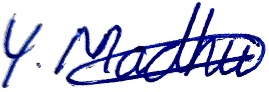 Y. Madhu